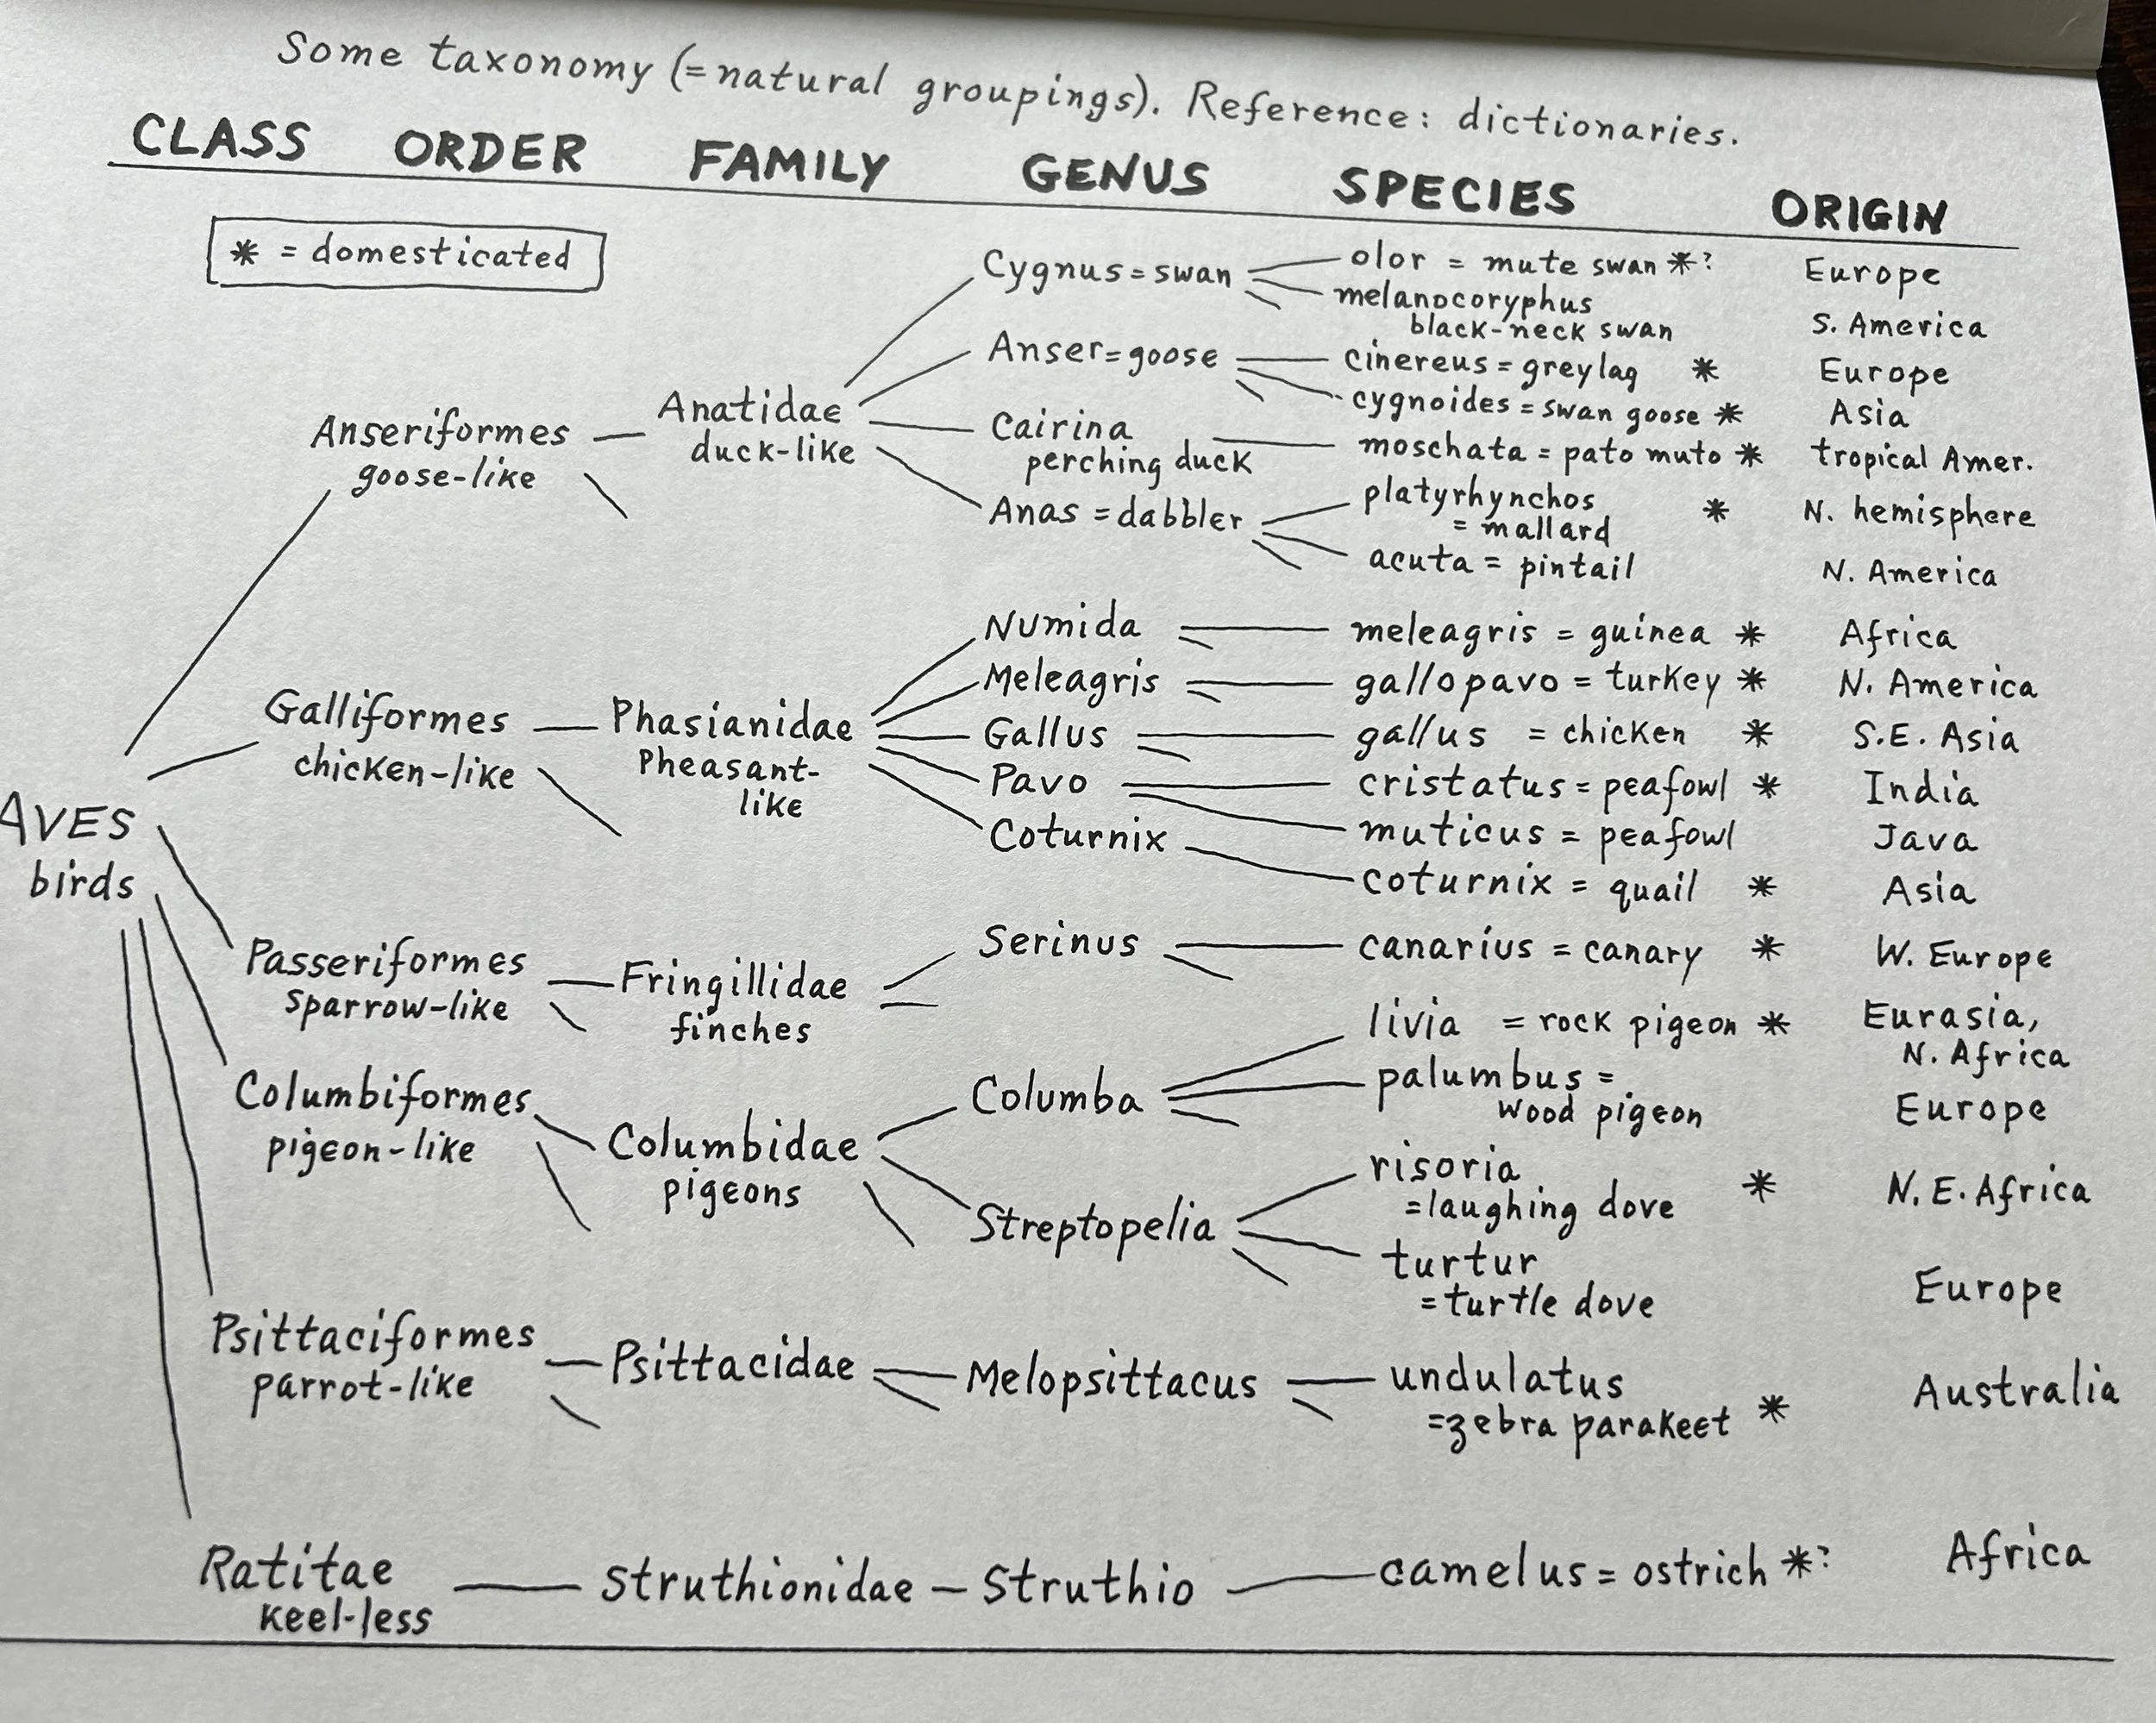 Some taxonomy (=natural groupings). Reference: dictionaries.
CLASS ORDER FAMILY GENUS SPECIES ORIGIN
* = domesticated
Cygnus = swan olor = mute swan *? Europe
melanocoryphus
black-neck swan S. America
Anser = goose cinereus = greylag * Europe
cygnoides = swan goose * Asia
Anseriformes Anatidae Cairina moschata = pato muto * tropical Amer.
goose-like duck-like perching duck
Anas = dabbler platyrhynchos
= mallard * N. hemisphere
acuta = pintail N. America
Numida meleagris = guinea * Africa
Meleagris gallopavo = turkey * N. America
Galliformes Phasianidae Gallus gallus = chicken * S.E. Asia
chicken-like Pheasant-
like
Pavo cristatus = peafowl * India
muticus = peafowl Java
Coturnix coturnix = quail * Asia
AVES
birds
Passeriformes Fringillidae Serinus canarius = canary * W. Europe
sparrow-like finches
Columbiformes Columbidae Columba livia = rock pigeon * Eurasia,
N. Africa
pigeon-like pigeons
palumbus =
wood pigeon Europe
Streptopelia risoria
=laughing dove * N.E. Africa
turtur
=turtle dove Europe
Psittaciformes Psittacidae Melopsittacus undulatus Australia
parrot-like =zebra parakeet *
Ratitae Struthionidae Struthio camelus = ostrich *? Africa
keel-less